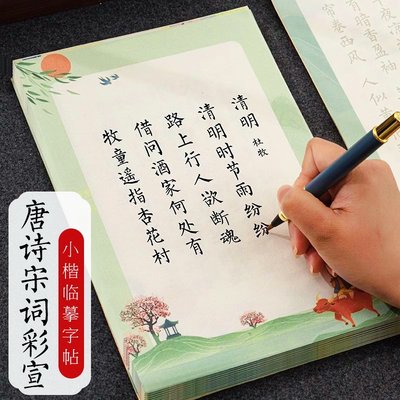 清明 杜牧
清明时节雨纷纷
路上行人欲断魂
借问酒家何处有
牧童遥指杏花村
有暗香盈袖
帘卷西风
唐诗宋词彩宣
小楷临摹字帖